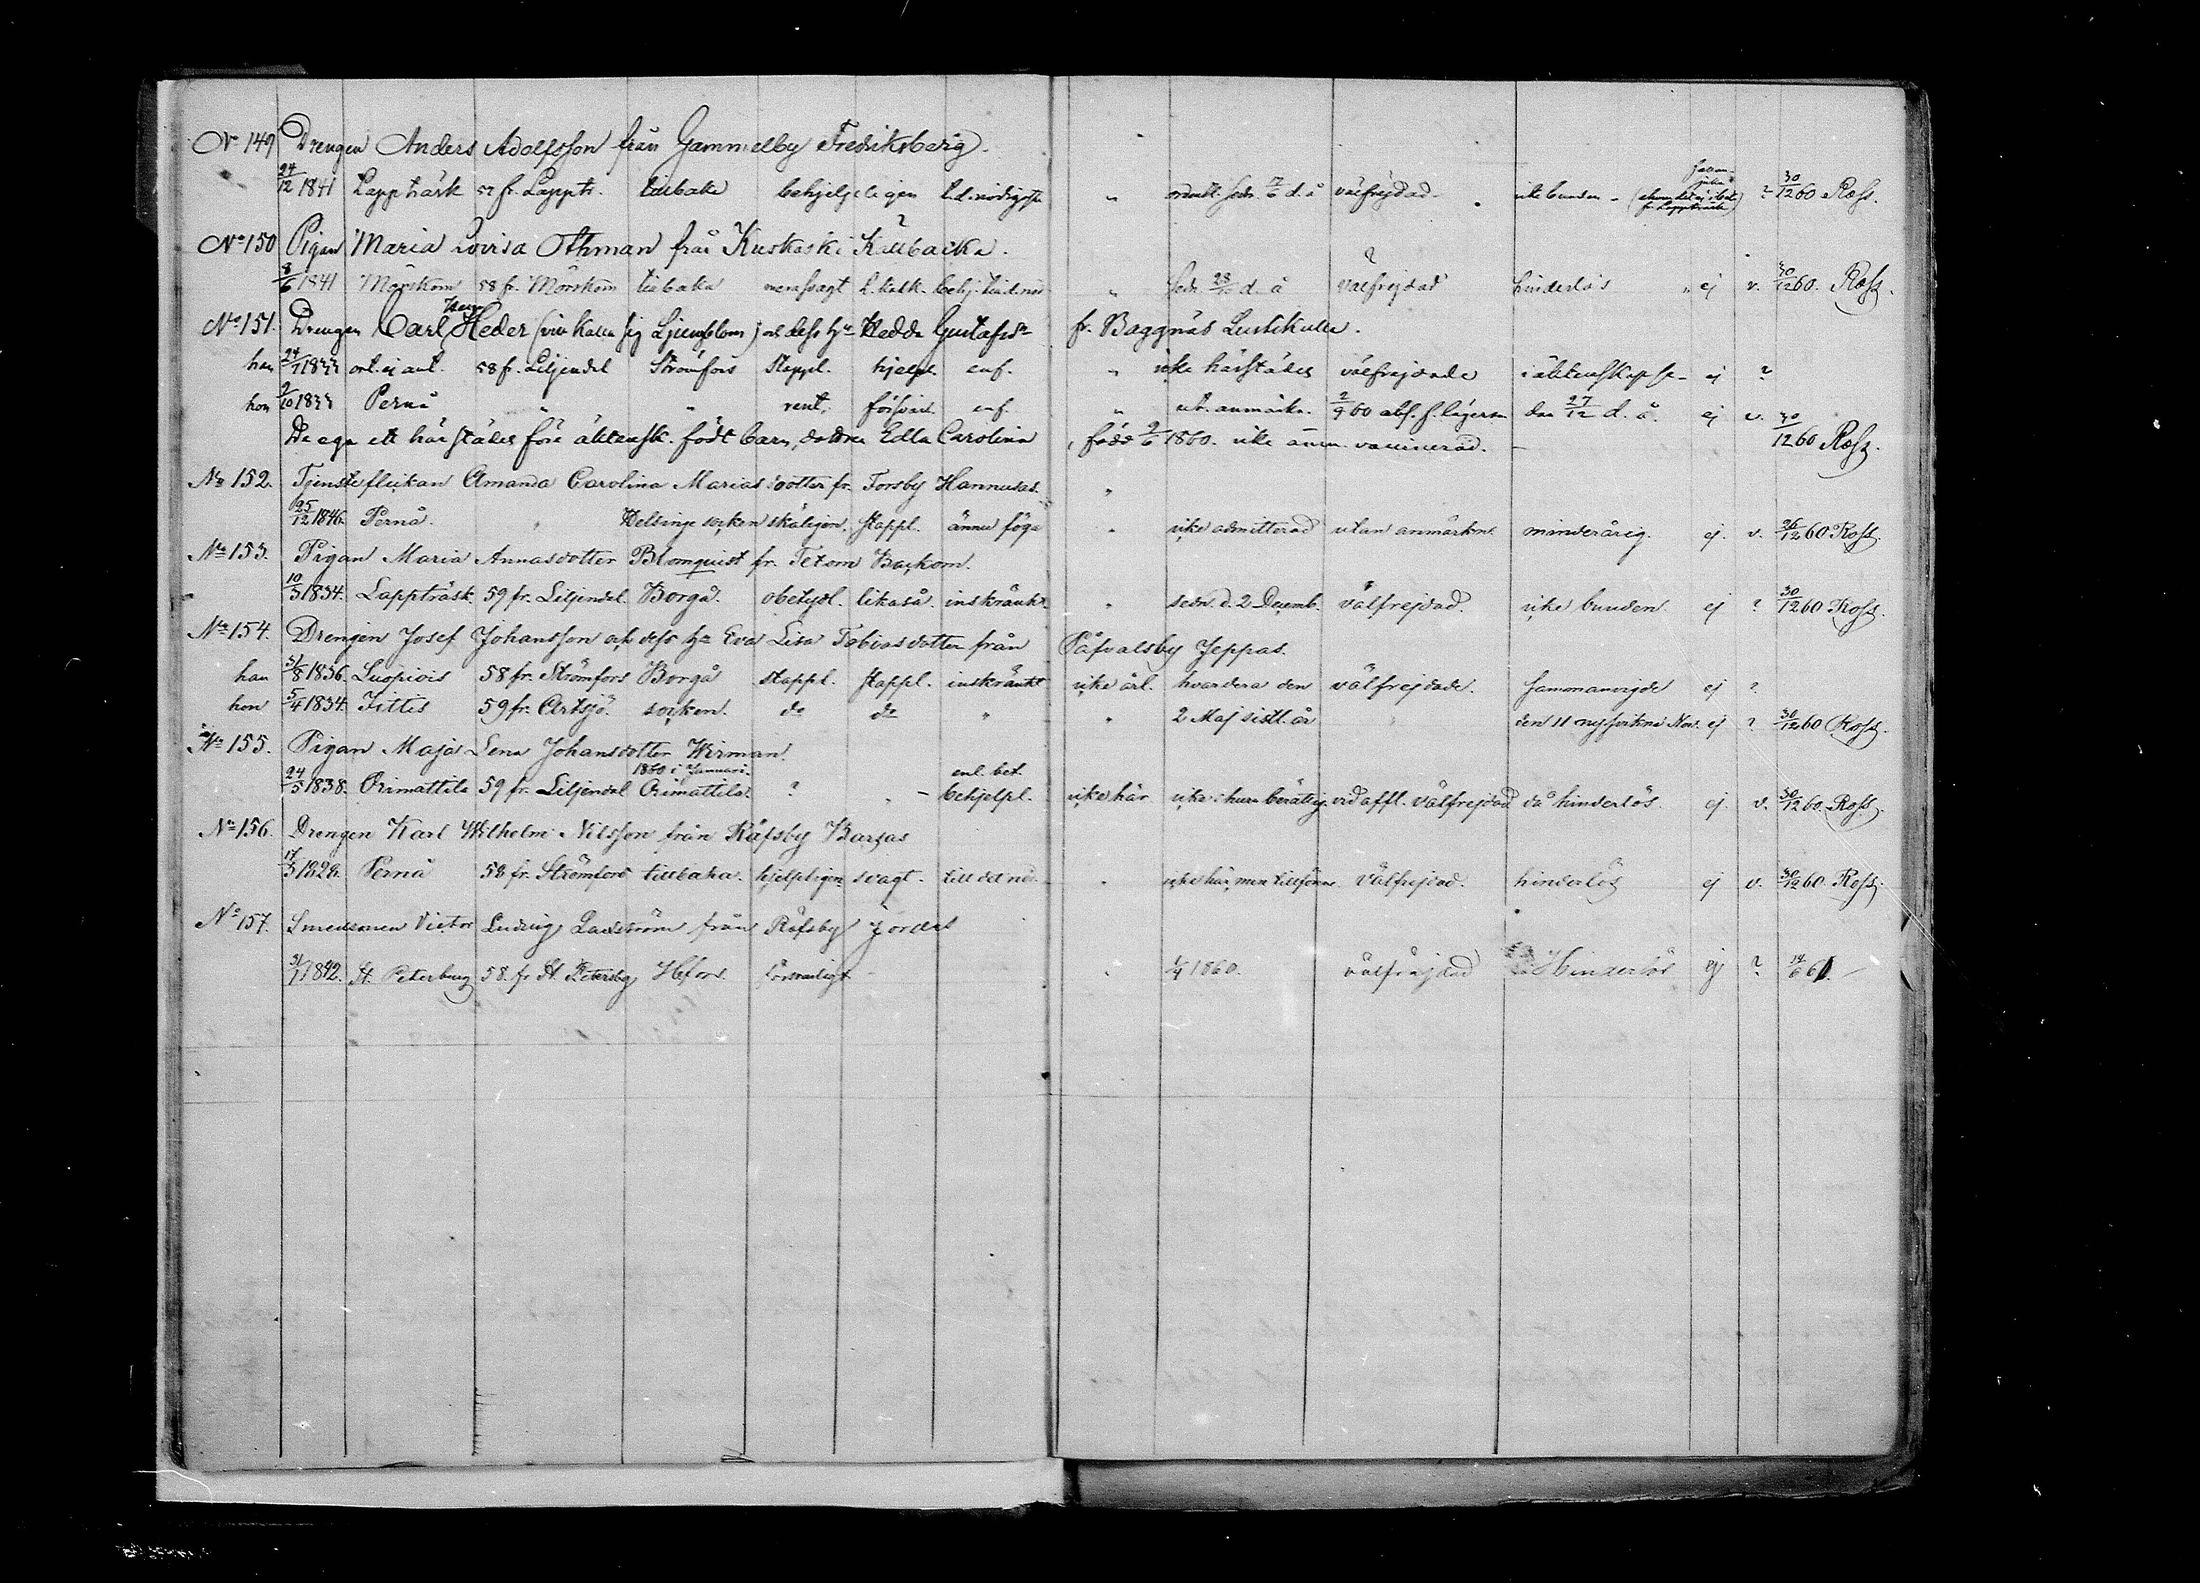 No 149 Drengen Anders Adolfsson från Gammelby Fredriksberg.
24/12 1841 Lappträsk 57 fr. Lapptr. tillbaka behjelpeligen t. d. nödigste " ordentl. sedn. d. å välfrejdad. ike bunden ? 30/12 60 Ross.
No 150 Pigan Maria Lovisa Othman från Kuskoski Källbacka.
8/6 1841 Mörskom 58 fr. Mörskom tillbaka svagt behj. " d. å välfrejdad hinderlös " ej v. 30/12 60. Ross.
No 151. Drengen Carl Heder (vill kalla sig) o. dess h. Hedda Gustafsdr fr. Baggnäs Lustikulla.
han 24/1 1833 ort. ej ant. 58 fr. Liljendal Strömfors stappl. hjelpl. enf. " icke härstädes välfrejdade i äktenskap ej ?
hon 9/10 1833 Pernå " rent. försvarl. enf. " ut. anmärkn. 2/9 60 abs. f. lägersm. den 27/12 d. å. ej v. 30/12 60 Ross.
De ega ett härstädes före äktensk. födt barn, dottren Edla Carolina, född 9/6 1860. icke ännu vaccinerad.
No 152. Tjensteflickan Amanda Carolina Mariasdotter fr. Forsby Hannusas. "
25/12 1846. Pernå. " Helsinge socken skäligen. stappl. ännu föga " icke admitterad utan anmärkn. minderårig. ej. v. 26/12 60 Ross.
No 153. Pigan Maria Annasdotter Blomquist fr. Tetom Backom.
10/3 1834. Lappträsk. 59 fr. Liljendal. Borgå. obetydl. likaså. inskränkt " sedn. d. 2 Decemb. välfrejdad. icke bunden. ej ? 30/12 60 Ross.
No 154. Drengen Josef Johansson och dess h. Eva Lisa Tobiasdotter från Påfvalsby Jeppas.
han 31/8 1836. 58 fr. Strömfors Borgå stappl. stappl. inskränkt icke årl. hvardera den välfrejdade. sammanvigde ej ?
hon 5/4 1834. Iittis 59 fr. Artsjö. socken. do do " " 2 Maj sistl. år " den 11 Nov. ej ? 30/12 60 Ross.
No 155. Pigan Maja Lena Johansdotter Wirman.
1860 i Januari. enl. bet.
24/5 1838. Orimattila 59 fr. Liljendal Orimattila. ? " behjelpl. icke här icke hvad afflytt. välfrejdad då hinderlös. ej v. 30/12 60. Ross.
No 156. Drengen Karl Wilhelm Nilsson från Råfsby Barsas
17/3 1828. Pernå 58 fr. Strömfors tillbaka. hjelpligen svagt. till det nö. " icke här, men tillförene välfrejdad. hinderlös ej v. 30/12 60. Ross.
No 157. Smedsonen Victor Ludvig Ladström från Råfsby Jordas
31/1 1842. St. Petersburg 58. fr St. Petersbg Hfors. försvarligt " 1/4 1860. välfräjdad Hinderlös ej ? 14/6 61.